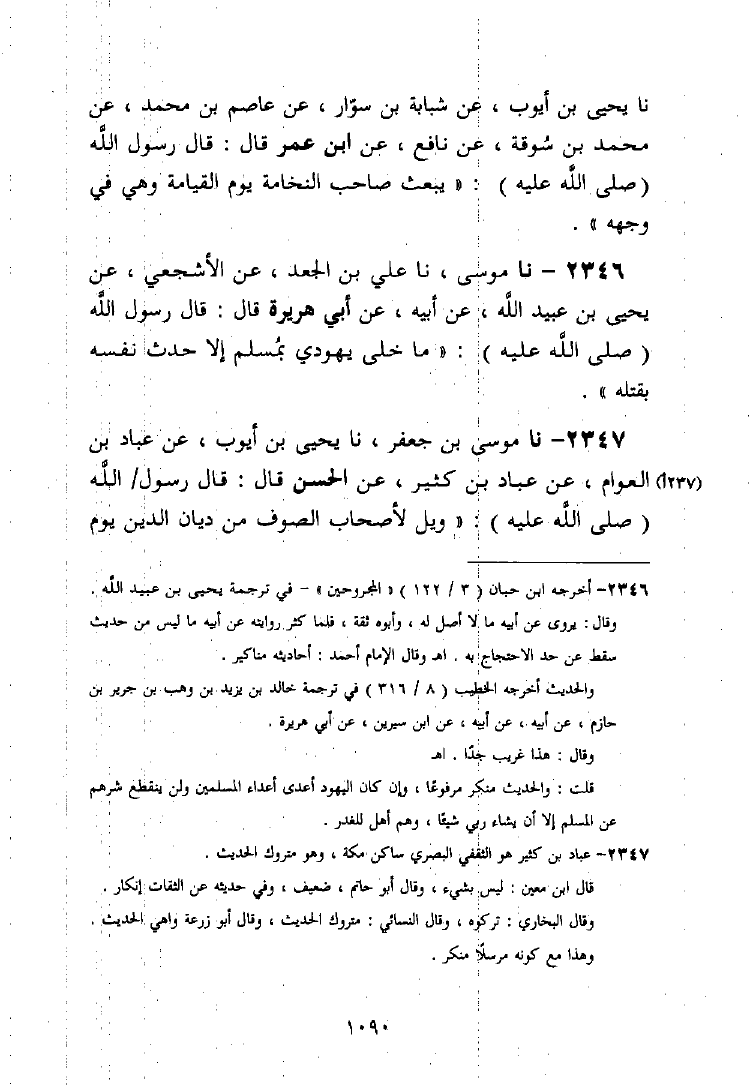 نا يحيى بن أيوب ، عن شبابة بن سوّار ، عن عاصم بن محمد ، عن
محمد بن سُوقة ، عن نافع ، عن ابن عمر قال : قال رسول اللَّه
( صلى اللَّه عليه ) : « يبعث صاحب النخامة يوم القيامة وهي في
وجهه » .
٢٣٤٦ – نا موسى ، نا علي بن الجعد ، عن الأشجعي ، عن
يحيى بن عبيد اللَّه ، عن أبيه ، عن أبي هريرة قال : قال رسول اللَّه
( صلى اللَّه عليه ) : « ما خلى يهودي بمُسلم إلا حدث نفسه
بقتله » .
٢٣٤٧– نا موسى بن جعفر ، نا يحيى بن أيوب ، عن عباد بن
(٢٣٧أ) العوام ، عن عباد بن كثير ، عن الحسن قال : قال رسول/ اللَّه
( صلى اللَّه عليه ) : « ويل لأصحاب الصوف من ديان الدين يوم
٢٣٤٦– أخرجه ابن حبان ( ٣ / ١٢٢ ) « المجروحين » – في ترجمة يحيى بن عبيد اللَّه .
وقال : يروى عن أبيه ما لا أصل له ، وأبوه ثقة ، فلما كثر روايته عن أبيه ما ليس من حديث
سقط عن حد الاحتجاج به . اهـ وقال الإمام أحمد : أحاديثه مناكير .
والحديث أخرجه الخطيب ( ٨ / ٣١٦ ) في ترجمة خالد بن يزيد بن وهب بن جرير بن
حازم ، عن أبيه ، عن أبيه ، عن ابن سيرين ، عن أبي هريرة .
وقال : هذا غريب جدًا . اهـ
قلت : والحديث منكر مرفوعًا ، وإن كان اليهود أعدى أعداء المسلمين ولن ينقطع شرهم
عن المسلم إلا أن يشاء ربي شيئًا ، وهم أهل للغدر .
٢٣٤٧– عباد بن كثير هو الثقفي البصري ساكن مكة ، وهو متروك الحديث .
قال ابن معين : ليس بشيء ، وقال أبو حاتم ، ضعيف ، وفي حديثه عن الثقات إنكار .
وقال البخاري : تركوه ، وقال النسائي : متروك الحديث ، وقال أبو زرعة واهي الحديث .
وهذا مع كونه مرسلًا منكر .
١٠٩٠